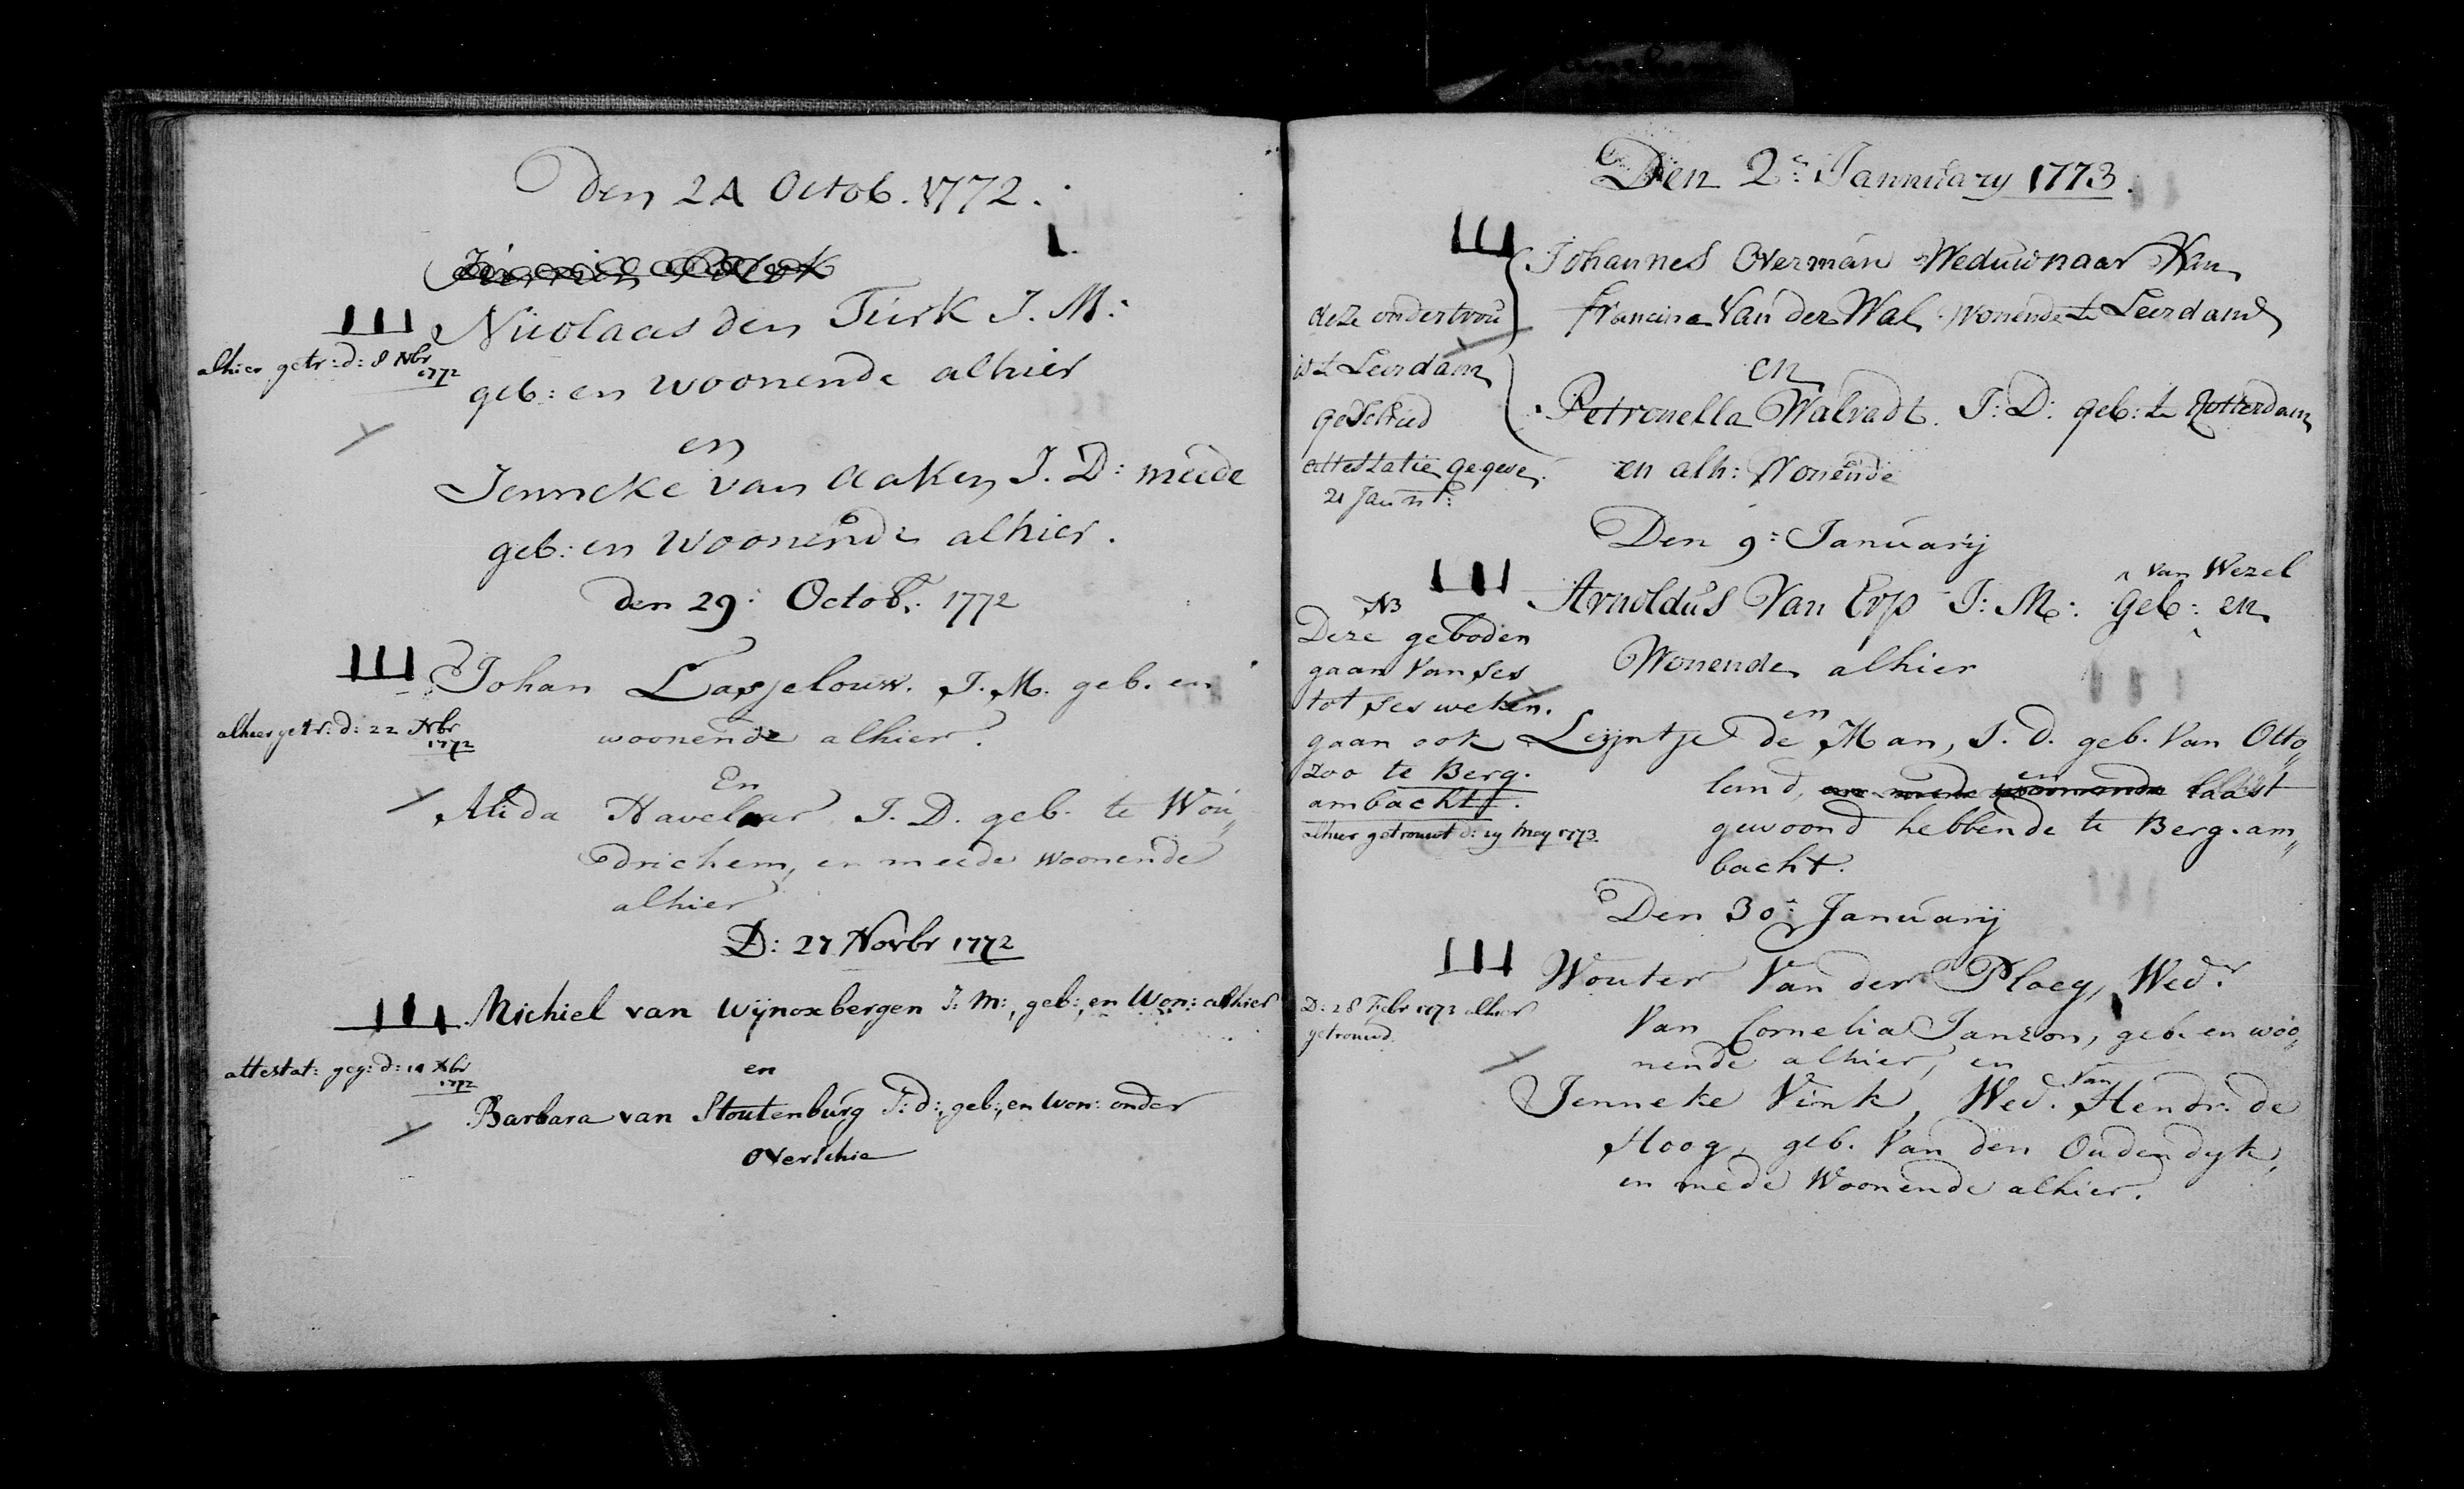 Den 24 Octob. 1772.
Nicolaas den Turk J. M:
alhier getr: d: 8 Nbr
1772
geb: en woonende alhier
en
Jenneke van Aaken J. D: meede
geb: en woonende alhier.
den 29: Octob: 1772
Johan Lasjelouw. J. M. geb. en
alhier getr: d: 22 Nbr
1772
woonende alhier.
En
Alida Havelaar, J. D. geb. te Wou„
drichem, en meede woonende
alhier
D: 27 Novbr 1772
Michiel van Wijnoxbergen J: M:, geb:, en Won: alhier
attestat: geg: d: 14 Xbr
1772
en
Barbara van Stoutenburg J: d:, geb:, en won: onder
Overschie
Den 2e: Jannuary 1773.
Johannes Overman Weduwnaar Van
francina Van der Wal wonende te Leerdam
en
Petronella Walradt. J: D: geb: te Rotterdam
en alh: Wonende
deze ondertrou
is te Leerdam
geschied
attestatie gegeve.
21 Jan
Den 9: Januarij
Arnoldus Van Erp J: M: geb: en
^ van Wezel
Wonende alhier
en
Leijntje de Man, J. d. geb. Van Otto„
land, en laast
gewoond hebbende te Berg-am„
bacht.
NB
Deze geboden
gaan van ses
tot ses weken.
gaan ook
zoo te Berg.
ambacht.
alhier getrouwt d: 19 Mey 1773
Den 30: Januarij
Wouter Van der Ploeg, Wedr
Van Cornelia Janzon, geb. en woo„
nende alhier, en
Jenneke Vink, Wed. van Hendr. de
Hoog, geb. Van den Oudendyk,
en mede Woonende alhier.
D: 28 Febr 1773 alhier
getrouwd.